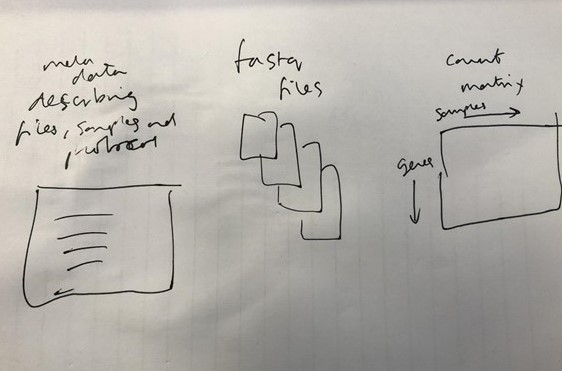 meta
data
describing
files, samples and
protocol
fastq
files
count
matrix
samples
genes